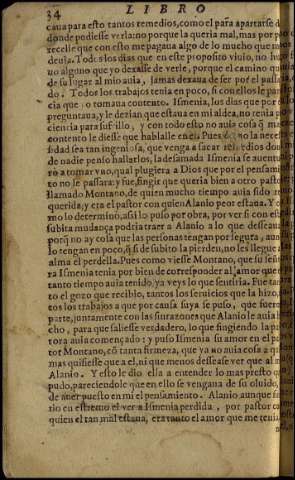 34 LIBRO
caua para esto tantos remedios, como el para apartarse d
donde pudiesse verla: no porque la queria mal, mas por
recelle que con esto me pagaua algo de lo mucho que me
deuia. Todos los dias que en este proposito viuio, no huuo
no alguno que yo dexasse de verle, porque el camino que
de su lugar al mio auia, jamas dexaua de ser por el passea
do. Todos los trabajos tenia en poco, si con ellos le pare
cia que yo tomaua contento. Ismenia, los dias que por el
preguntaua, y le dezian que estaua en mi aldea, no tenia pa
ciencia para suffrillo, y con todo esto no auia cosa que mas
contento le diesse que hablalle en el. Pues como la neces
sidad sea tan ingeniosa, que venga a sacar remedios don
de nadie penso hallarlos, la desamada Ismenia se auentu
ro a tomar vno, qual pluguiera a Dios que por el pensamiẽ
to no le passara: y fue, fingir que queria bien a otro pastor
llamado Montano, de quien mucho tiempo auia sido re
querida, y era el pastor con quien Alanio peor estaua. Y co
mo lo determino, assi lo puso por obra, por ver si con esta
subita mudança podria traer a Alanio a lo que desseaua
porq̃ no ay cosa que las personas tengan por segura, aunq̃
lo tengan en poco, q̃ si de subito la pierden, no les llegue al
alma el perdella. Pues como viesse Montano, que su señora
Ismenia tenia por bien de corresponder al amor que el
tanto tiempo auia tenido, ya veys lo que sentiria. Fue tan
to el gozo que recibio, tantos los seruicios que la hizo, tan
tos los trabajos a que por causa suya se puso, que fueron
parte, juntamente con las sinrazones que Alanio le auia he
cho, para que saliesse verdadero, lo que fingiendo la pas
tora auia començado: y puso Ismenia su amor en el pas
tor Montano, cõ tanta firmeza, que ya no auia cosa a quien
mas quisiesse que a el, ni que menos desseasse ver que al mi
Alanio. Y esto le dio ella a entender lo mas presto que
pudo, pareciendole que en ello se vengaua de su oluido, y
de auer puesto en mi el pensamiento. Alanio aunque sin
tio en estremo el ver a Ismenia perdida, por pastor con
quien el tan mal estaua, era tanto el amor que me tenia